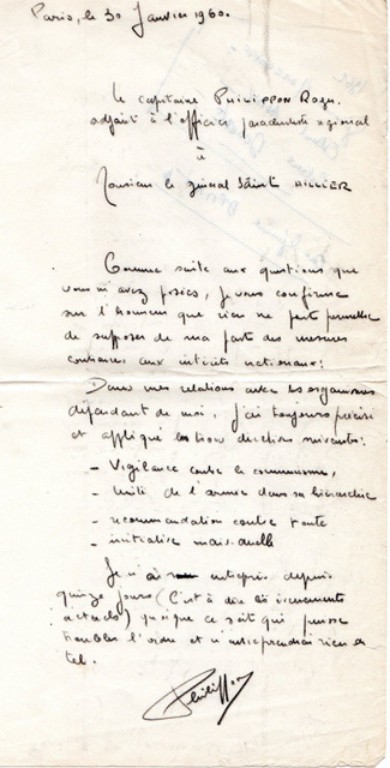 Paris, le 30 Janvier 1960.
Le capitaine PHILIPPON Roger.
adjoint à l'officier parachutiste régional
à
Monsieur le général SAINT HILLIER
Comme suite aux questions que
vous m'avez posées, je vous confirme
sur l'honneur que rien ne peut permettre
de supposer de ma part des mesures
contraires aux intérêts nationaux:
Dans mes relations avec les organismes
dépendant de moi, j'ai toujours précisé
et appliqué les trois directives suivantes:
- Vigilance contre le communisme,
- Unité de l'armée dans sa hiérarchie
- recommandation contre toute
- initiative individuelle
Je n'ai entrepris depuis
quinze jours (c'est à dire les événements
actuels) quoique ce soit qui puisse
troubler l'ordre et n'entreprendrai rien de
tel.
Philippon